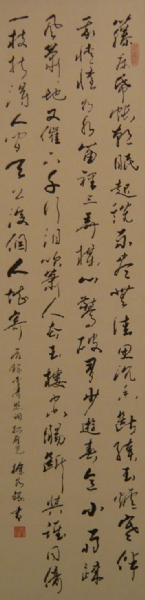 藤床紙帳朝眠起説不盡無佳思沉香斷續玉爐寒伴
我情懷如水笛裡三弄梅心驚破多少遊春意小風疎
雨蕭蕭地又催下千行淚吹簫人去玉樓空腸斷與誰同倚
一枝折得人間天上沒個人堪寄
李清照詞孤雁兒 徐 書